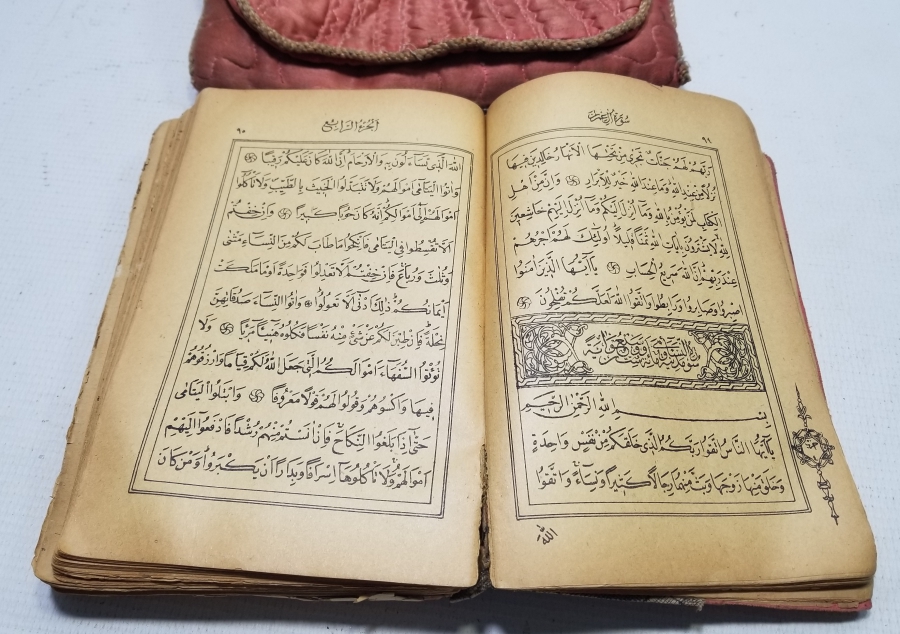 سورة آل عمران
رَبَّهُمْ لَهُمْ جَنَّاتٌ تَجْرِي مِنْ تَحْتِهَا الْاَنْهَارُ خَالِدِينَ فِيهَا
نُزُلًا مِنْ عِنْدِ اللّٰهِ وَمَا عِنْدَ اللّٰهِ خَيْرٌ لِلْاَبْرَارِ وَاِنَّ مِنْ اَهْلِ
الْكِتَابِ لَمَنْ يُؤْمِنُ بِاللّٰهِ وَمَا اُنْزِلَ اِلَيْكُمْ وَمَا اُنْزِلَ اِلَيْهِمْ خَاشِعِينَ
لِلّٰهِ لَا يَشْتَرُونَ بِاٰيَاتِ اللّٰهِ ثَمَنًا قَلِيلًا اُولٰئِكَ لَهُمْ اَجْرُهُمْ
عِنْدَ رَبِّهِمْ اِنَّ اللّٰهَ سَرِيعُ الْحِسَابِ يَا اَيُّهَا الَّذِينَ اٰمَنُوا
اصْبِرُوا وَصَابِرُوا وَرَابِطُوا وَاتَّقُوا اللّٰهَ لَعَلَّكُمْ تُفْلِحُونَ
سورة النساء
بِسْمِ اللّٰهِ الرَّحْمٰنِ الرَّحِيمِ
يَا اَيُّهَا النَّاسُ اتَّقُوا رَبَّكُمُ الَّذِي خَلَقَكُمْ مِنْ نَفْسٍ وَاحِدَةٍ
وَخَلَقَ مِنْهَا زَوْجَهَا وَبَثَّ مِنْهُمَا رِجَالًا كَثِيرًا وَنِسَاءً وَاتَّقُوا
اللّٰهَ
الجزء الرابع
اللّٰهَ الَّذِي تَسَاءَلُونَ بِهِ وَالْاَرْحَامَ اِنَّ اللّٰهَ كَانَ عَلَيْكُمْ رَقِيبًا
وَاٰتُوا الْيَتَامٰى اَمْوَالَهُمْ وَلَا تَتَبَدَّلُوا الْخَبِيثَ بِالطَّيِّبِ وَلَا تَاْكُلُوا
اَمْوَالَهُمْ اِلٰى اَمْوَالِكُمْ اِنَّهُ كَانَ حُوبًا كَبِيرًا وَاِنْ خِفْتُمْ
اَلَّا تُقْسِطُوا فِي الْيَتَامٰى فَانْكِحُوا مَا طَابَ لَكُمْ مِنَ النِّسَاءِ مَثْنٰى
وَثُلٰثَ وَرُبَاعَ فَاِنْ خِفْتُمْ اَلَّا تَعْدِلُوا فَوَاحِدَةً اَوْ مَا مَلَكَتْ
اَيْمَانُكُمْ ذٰلِكَ اَدْنٰى اَلَّا تَعُولُوا وَاٰتُوا النِّسَاءَ صَدُقَاتِهِنَّ
نِحْلَةً فَاِنْ طِبْنَ لَكُمْ عَنْ شَيْءٍ مِنْهُ نَفْسًا فَكُلُوهُ هَنِيئًا مَرِيئًا وَلَا
تُؤْتُوا السُّفَهَاءَ اَمْوَالَكُمُ الَّتِي جَعَلَ اللّٰهُ لَكُمْ قِيَامًا وَارْزُقُوهُمْ
فِيهَا وَاكْسُوهُمْ وَقُولُوا لَهُمْ قَوْلًا مَعْرُوفًا وَابْتَلُوا الْيَتَامٰى
حَتّٰى اِذَا بَلَغُوا النِّكَاحَ فَاِنْ اٰنَسْتُمْ مِنْهُمْ رُشْدًا فَادْفَعُوا اِلَيْهِمْ
اَمْوَالَهُمْ وَلَا تَاْكُلُوهَا اِسْرَافًا وَبِدَارًا اَنْ يَكْبَرُوا وَمَنْ كَانَ